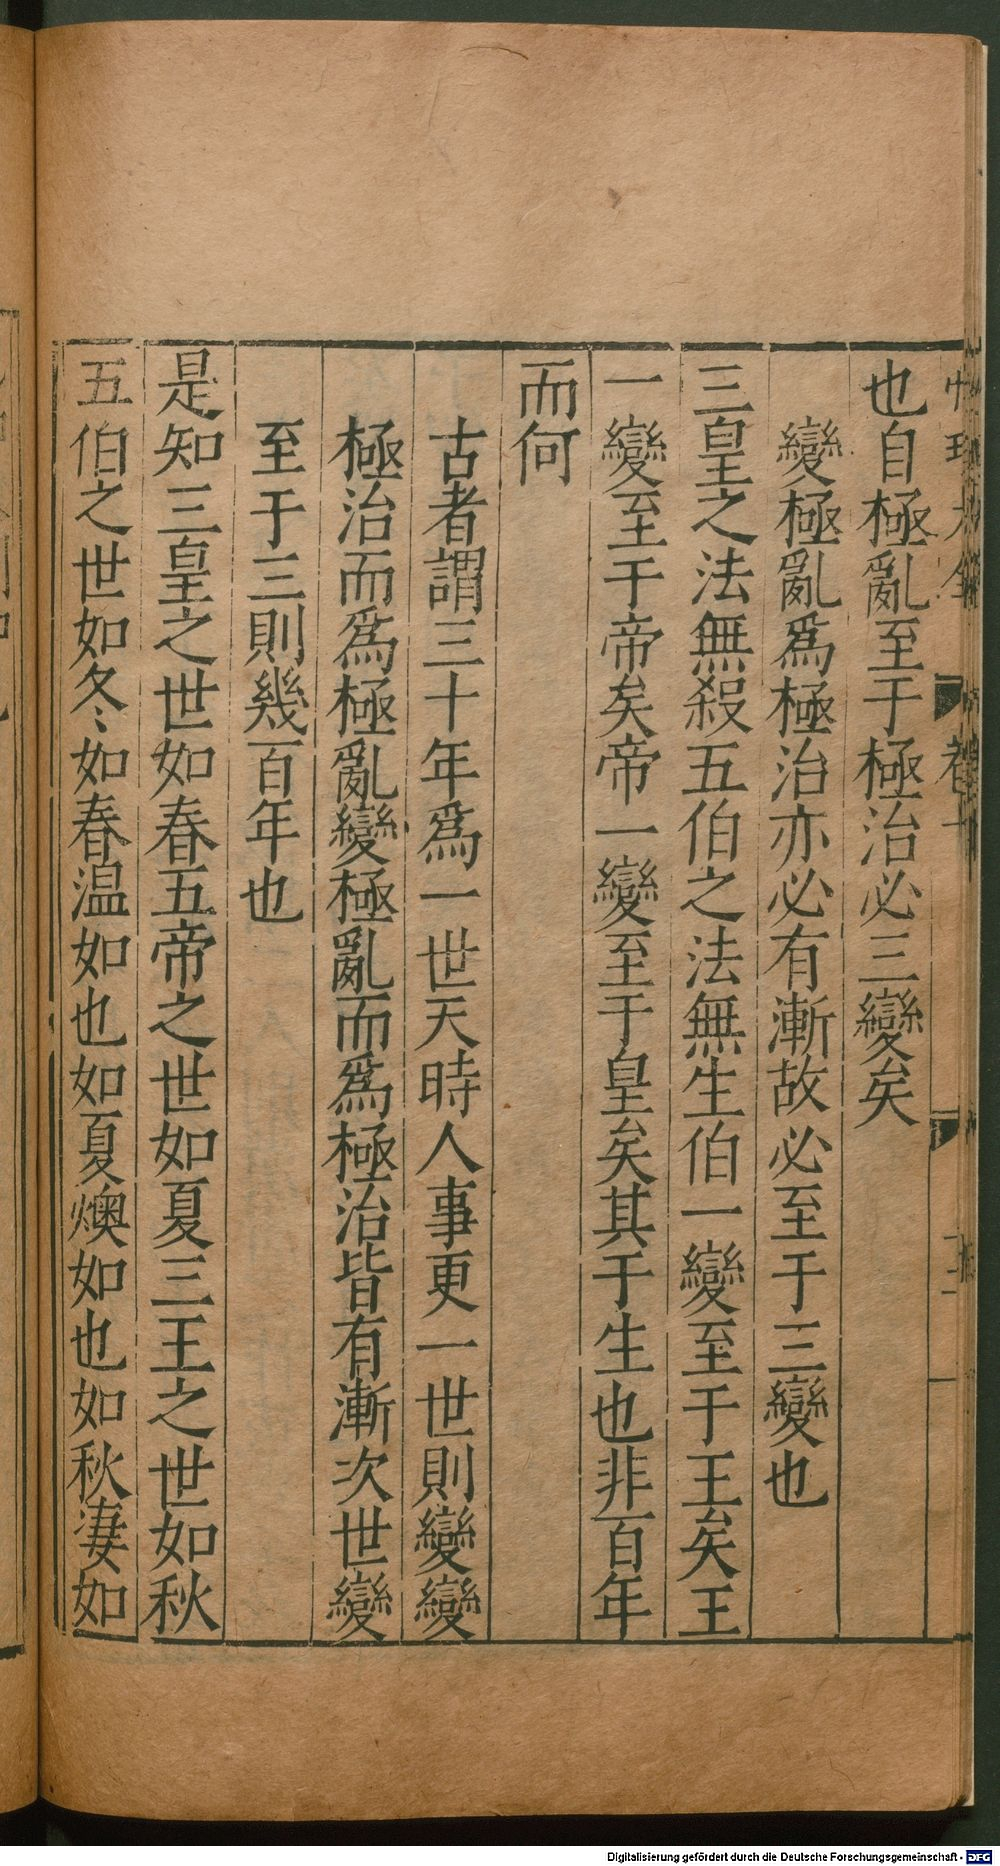 也自極亂至于極治必三變矣
變極亂爲極治亦必有漸故必至于三變也
三皇之法無殺五伯之法無生伯一變至于王矣王
一變至于帝矣帝一變至于皇矣其于生也非百年
而何
古者謂三十年爲一世天時人事更一世則變變
極治而爲極亂變極亂而爲極治皆有漸次世變
至于三則幾百年也
是知三皇之世如春五帝之世如夏三王之世如秋
五伯之世如冬如春温如也如夏燠如也如秋凄如
Digitalisierung gefördert durch die Deutsche Forschungsgemeinschaft - DFG